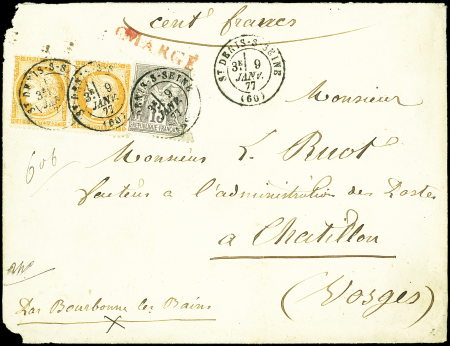 cent francs
CHARGÉ
ST DENIS-S-SEINE
3E 9
JANV.
77
(60)
ST DENIS-S-S
JANV.
9
JANV.
77
(60)
DENIS-S-SEINE
15
606
Monsieur
Monsieur L. Ruot
facteur à l'administration des Postes
à Chatillon
(Vosges)
Par Bourbonne les Bains